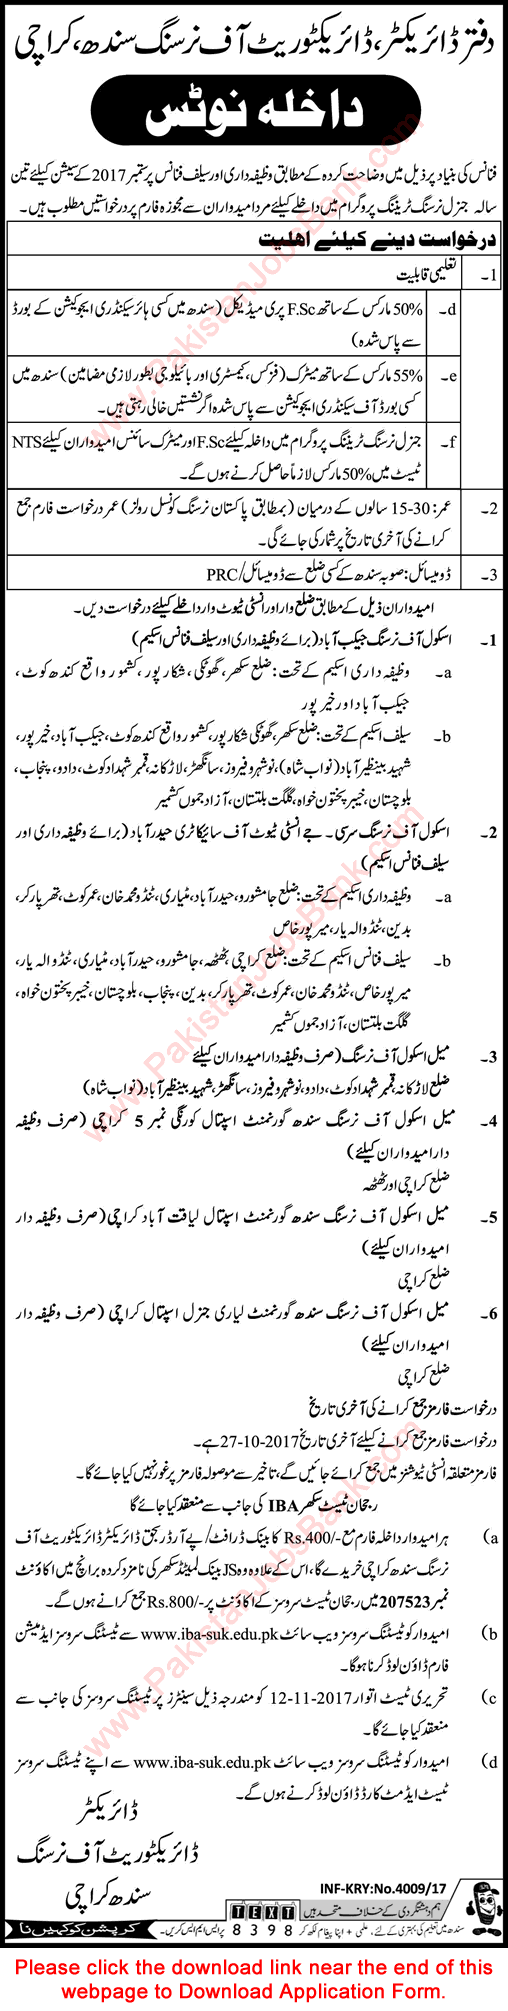 دفتر ڈائریکٹر، ڈائریکٹوریٹ آف نرسنگ سندھ، کراچی
داخلہ نوٹس
فنانس کی بنیاد پر ذیل میں وضاحت کردہ کے مطابق وظیفہ داری اور سیلف فنانس پر ستمبر 2017 کے سیشن کیلئے تین
سالہ جنرل نرسنگ ٹریننگ پروگرام میں داخلے کیلئے مرد امیدواران سے مجوزہ فارم پر درخواستیں مطلوب ہیں۔
درخواست دینے کیلئے اہلیت
1۔ تعلیمی قابلیت
d۔ 50% مارکس کے ساتھ F.Sc پری میڈیکل (سندھ میں کسی ہائر سیکنڈری ایجوکیشن کے بورڈ
سے پاس شدہ)
e۔ 55% مارکس کے ساتھ میٹرک (فزکس، کیمسٹری اور بائیلوجی بطور لازمی مضامین) سندھ میں
کسی بورڈ آف سیکنڈری ایجوکیشن سے پاس شدہ اگر نشستیں خالی رہتی ہیں۔
f۔ جنرل نرسنگ ٹریننگ پروگرام میں داخلہ کیلئے F.Sc اور میٹرک سائنس امیدواران کیلئے NTS
ٹیسٹ میں 50% مارکس لازماً حاصل کرنے ہوں گے۔
2۔ عمر: 15-30 سالوں کے درمیان (بمطابق پاکستان نرسنگ کونسل رولز) عمر درخواست فارم جمع
کرانے کی آخری تاریخ پر شمار کی جائے گی۔
3۔ ڈومیسائل: صوبہ سندھ کے کسی ضلع سے ڈومیسائل/PRC
امیدواران ذیل کے مطابق ضلع وار اور انسٹی ٹیوٹ وار داخلے کیلئے درخواست دیں۔
1۔ اسکول آف نرسنگ جیکب آباد (برائے وظیفہ داری اور سیلف فنانس اسکیم)
a۔ وظیفہ داری اسکیم کے تحت: ضلع سکھر، گھوٹکی، شکارپور، کشمور واقع کندھ کوٹ،
جیکب آباد اور خیرپور
b۔ سیلف اسکیم کے تحت: ضلع سکھر، گھوٹکی شکارپور، کشمور واقع کندھ کوٹ، جیکب آباد، خیرپور،
شہید بینظیر آباد (نواب شاہ)، نوشہرو فیروز، سانگھڑ، لاڑکانہ، قمبر شہدادکوٹ، دادو، پنجاب،
بلوچستان، خیبر پختون خواہ، گلگت بلتستان، آزاد جموں کشمیر
2۔ اسکول آف نرسنگ سرسی۔ جے انسٹی ٹیوٹ آف سائیکاٹری حیدرآباد (برائے وظیفہ داری اور
سیلف فنانس اسکیم)
a۔ وظیفہ داری اسکیم کے تحت: ضلع جامشورو، حیدرآباد، مٹیاری، ٹنڈو محمد خان، عمر کوٹ، تھرپارکر،
بدین، ٹنڈوالہ یار، میرپور خاص
b۔ سیلف فنانس اسکیم کے تحت: ضلع کراچی ٹھٹھہ، جامشورو، حیدرآباد، مٹیاری، ٹنڈوالہ یار،
میرپور خاص، ٹنڈو محمد خان، عمر کوٹ، تھرپارکر، بدین، پنجاب، بلوچستان، خیبر پختون خواہ،
گلگت بلتستان، آزاد جموں کشمیر
3۔ میل اسکول آف نرسنگ (صرف وظیفہ دار امیدواران کیلئے
ضلع لاڑکانہ، قمبر شہدادکوٹ، دادو، نوشہرو فیروز، سانگھڑ، شہید بینظیر آباد (نواب شاہ)
4۔ میل اسکول آف نرسنگ سندھ گورنمنٹ اسپتال کورنگی نمبر 5 کراچی (صرف وظیفہ
دار امیدواران کیلئے)
ضلع کراچی اور ٹھٹھہ
5۔ میل اسکول آف نرسنگ سندھ گورنمنٹ اسپتال لیاقت آباد کراچی (صرف وظیفہ دار
امیدواران کیلئے)
ضلع کراچی
6۔ میل اسکول آف نرسنگ سندھ گورنمنٹ لیاری جنرل اسپتال کراچی (صرف وظیفہ دار
امیدواران کیلئے)
ضلع کراچی
درخواست فارمز جمع کرانے کی آخری تاریخ
درخواست فارمز جمع کرانے کیلئے آخری تاریخ 27-10-2017 ہے۔
فارمز متعلقہ انسٹی ٹیوشنز میں جمع کرائے جائیں گے، تاخیر سے موصولہ فارمز پر غور نہیں کیا جائے گا۔
رجحان ٹیسٹ سکھر IBA کی جانب سے منعقد کیا جائے گا
(a ہر امیدوار داخلہ فارم مع Rs.400/- کا بینک ڈرافٹ / پے آرڈر بحق ڈائریکٹر ڈائریکٹوریٹ آف
نرسنگ سندھ کراچی خریدے گا، اس کے علاوہ وہ JS بینک لمیٹڈ سکھر کی نامزد کردہ برانچ میں اکاؤنٹ
نمبر 207523 میں رجحان ٹیسٹ سروسز کے اکاؤنٹ پر Rs.800/- جمع کرانے ہوں گے۔
(b امیدوار کو ٹیسٹنگ سروسز ویب سائٹ www.iba-suk.edu.pk سے ٹیسٹنگ سروسز ایڈمیشن
فارم ڈاؤن لوڈ کرنا ہوگا۔
(c تحریری ٹیسٹ اتوار 12-11-2017 کو مندرجہ ذیل سینٹرز پر ٹیسٹنگ سروسز کی جانب سے
منعقد کیا جائے گا۔
(d امیدوار کو ٹیسٹنگ سروسز ویب سائٹ www.iba-suk.edu.pk سے اپنے ٹیسٹنگ سروسز
ٹیسٹ ایڈمٹ کارڈ ڈاؤن لوڈ کرنے ہوں گے۔
ڈائریکٹر
ڈائریکٹوریٹ آف نرسنگ
سندھ کراچی
INF-KRY:No.4009/17
ہم دہشتگردی کے خلاف متحد ہیں TEXT
سندھ میں تعلیم کی بہتری کے لئے، علمی + اپنا پیغام لکھ کر 8398 پر ایس ایم ایس کریں۔
کرپشن کو کہیں نا
www.PakistanJobsBank.com
www.PakistanJobsBank.com
www.PakistanJobsBank.com
Please click the download link near the end of this
webpage to Download Application Form.